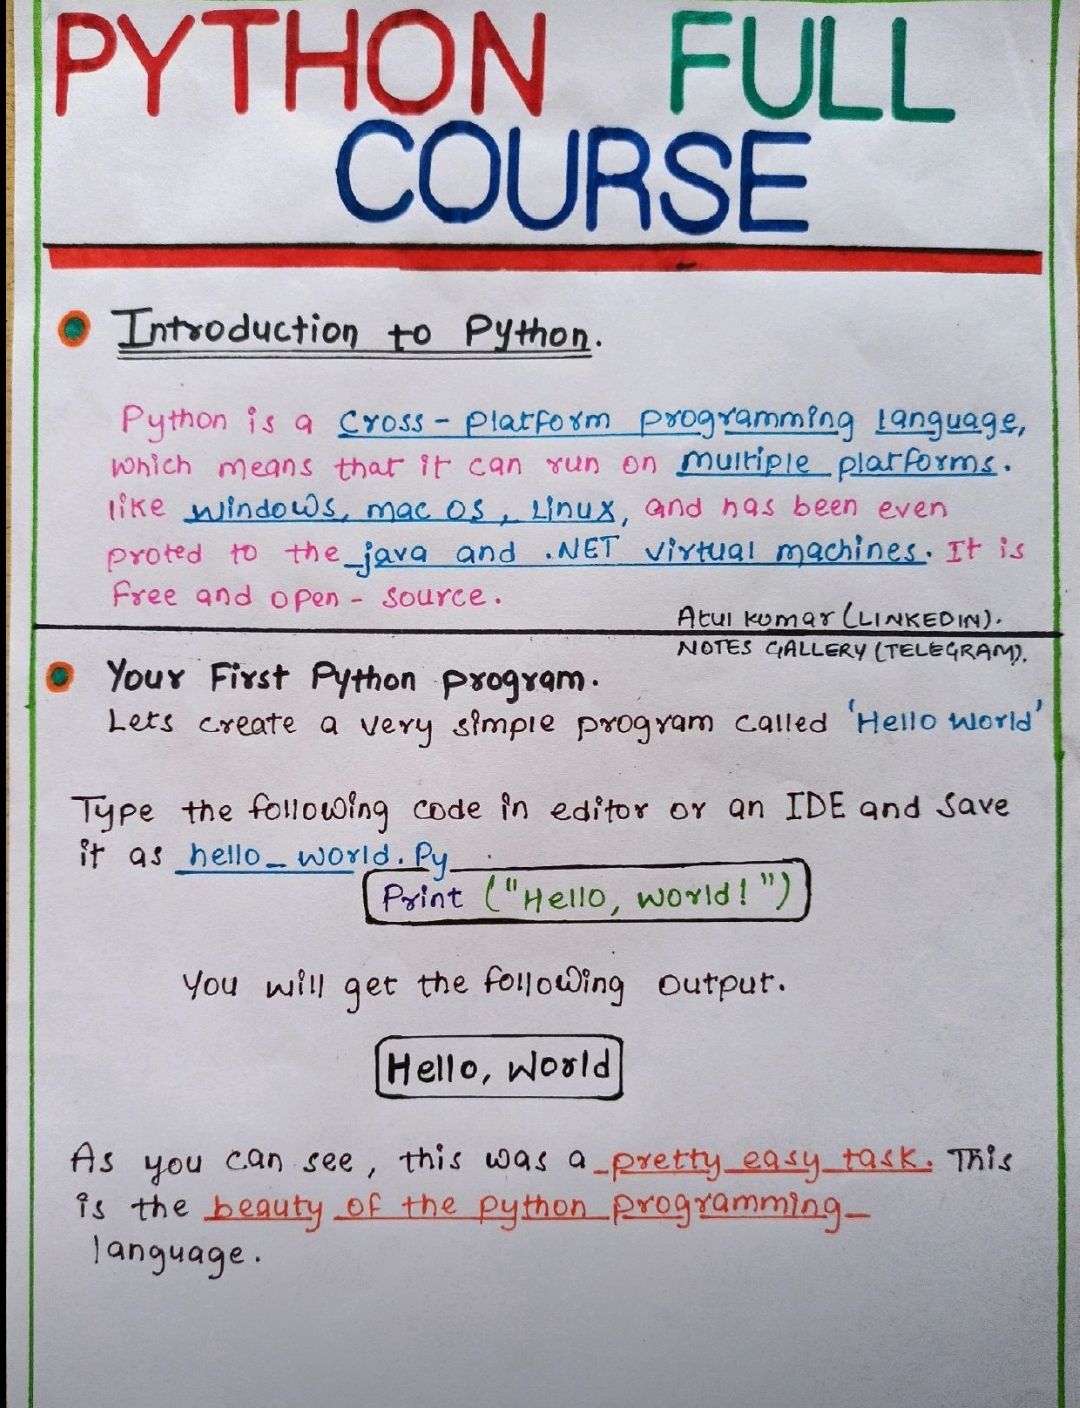 PYTHON FULL
COURSE
Introduction to Python.
Python is a cross-platform programming language,
which means that it can run on multiple platforms.
like windows, mac OS, Linux, and has been even
proted to the java and .NET virtual machines. It is
free and open-source.
Atul kumar (LINKEDIN).
NOTES GALLERY (TELEGRAM).
Your First Python program.
Lets create a very simple program called 'Hello World'
Type the following code in editor or an IDE and save
it as hello_world.Py
Print ("Hello, world!")
You will get the following output.
Hello, world
As you can see, this was a pretty easy task. This
is the beauty of the python programming
language.